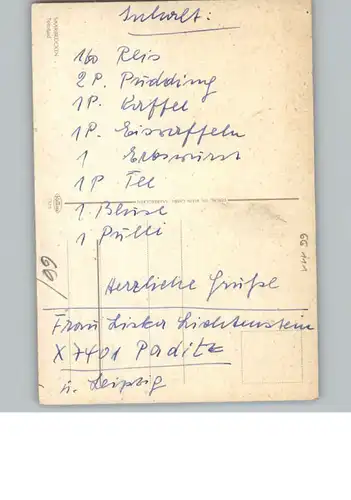 Inhalt:
160 Reis
2 P. Pudding
1 P. Kaffee
1 P. Eiswaffeln
1 Erbswurst
1 P Tee
1 Bluse
1 Pulli
Herzliche Grüße
Frau Liska Lichtenstein
X 7401 Paditz
ü. Leipzig
SAARBRÜCKEN
66/
111 59